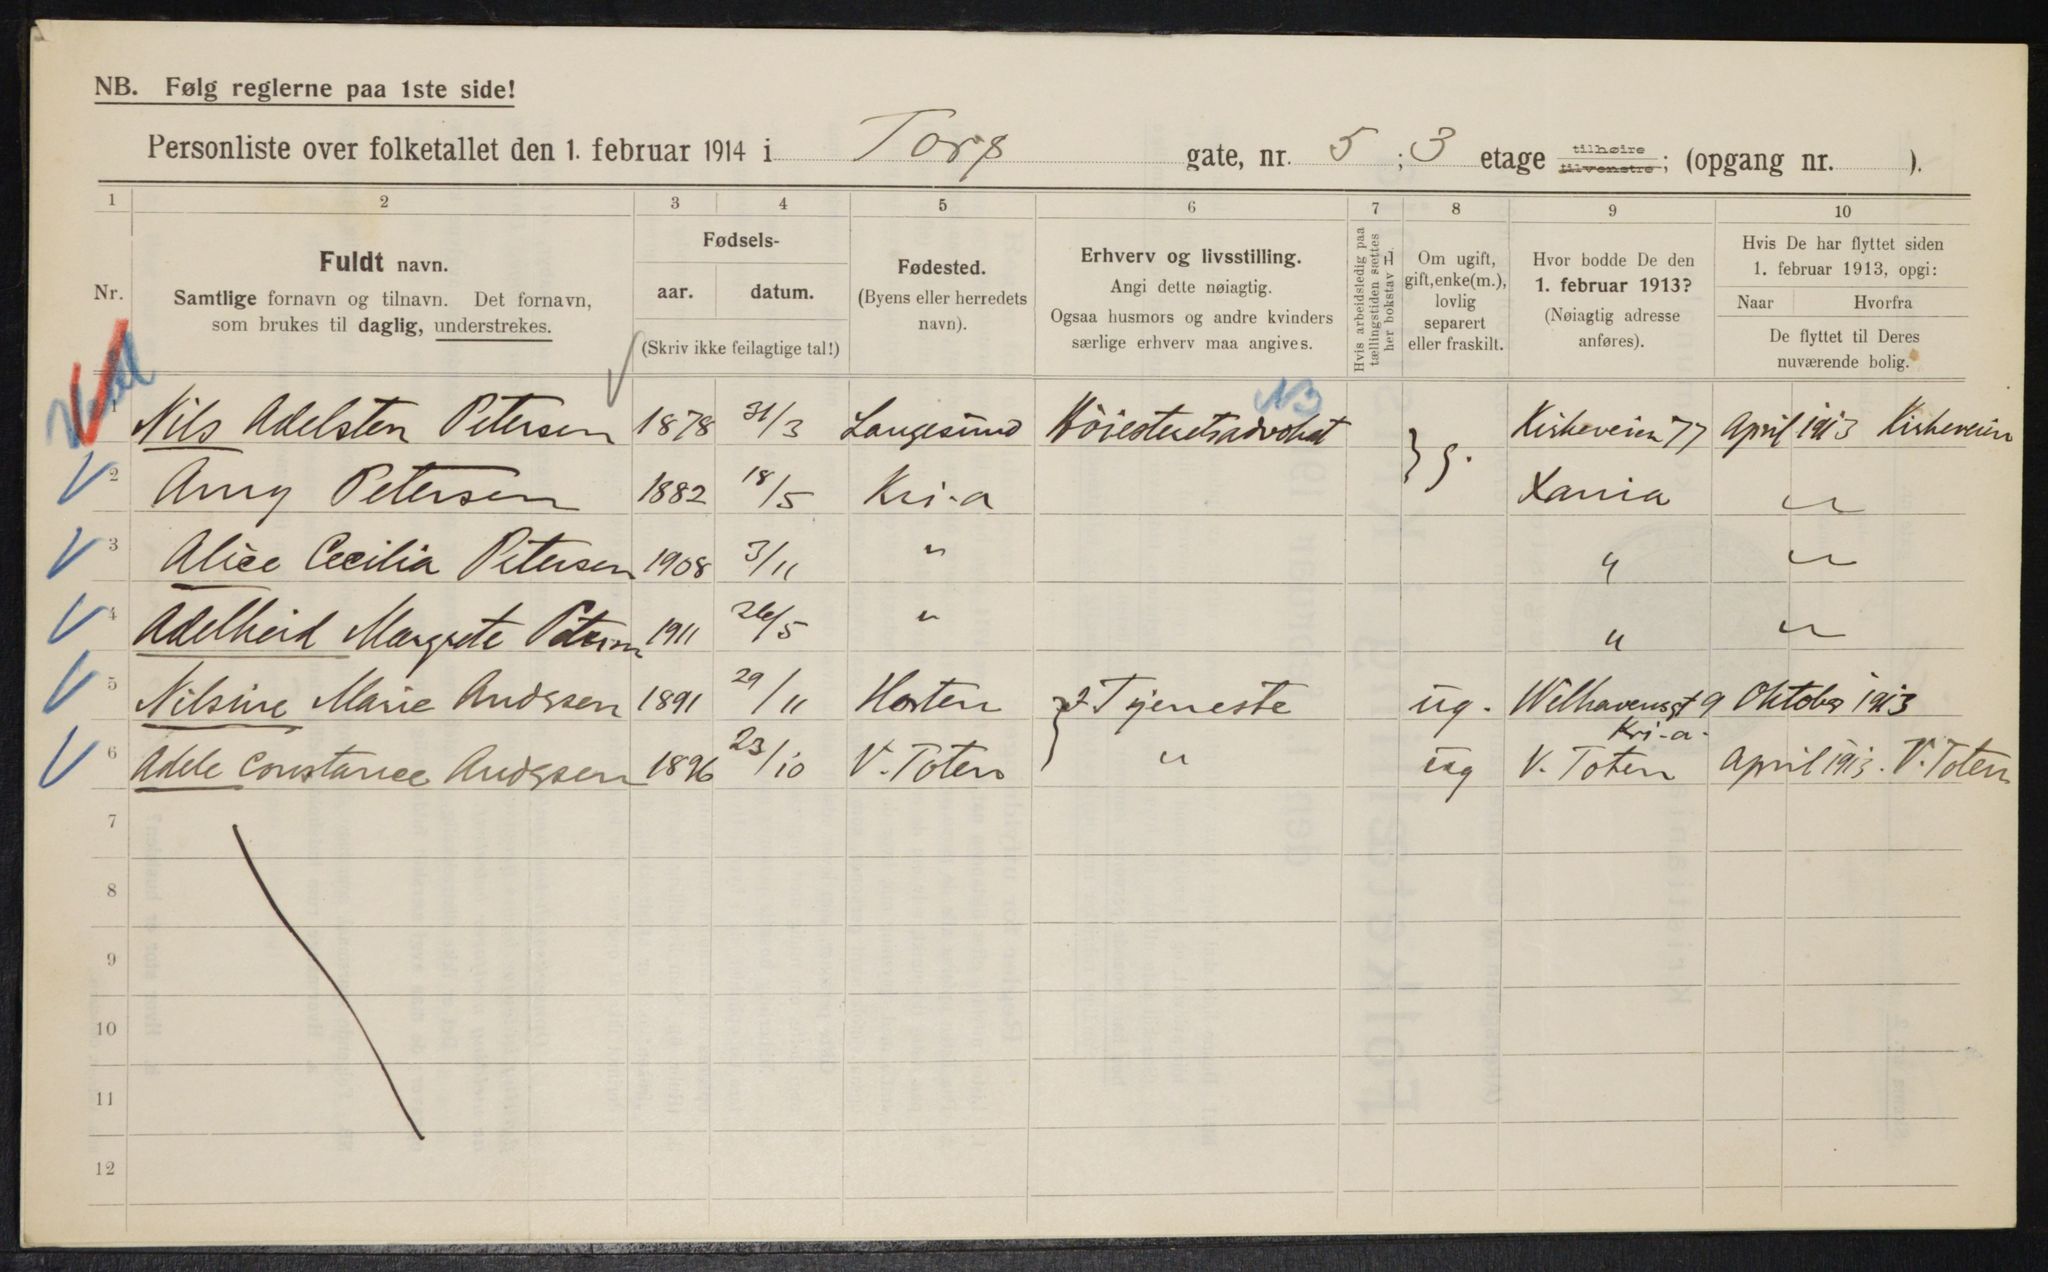 NB. Følg reglerne paa 1ste side!
Personliste over folketallet den 1. februar 1914 i Torp gate, nr. 5 ; 3 etage tilhøire tilvenstre; (opgang nr. ).
1 2 3 4 5 6 7 8 9 10
Nr.
Fuldt navn.
Samtlige fornavn og tilnavn. Det fornavn,
som brukes til daglig, understrekes.
Fødsels-
aar. datum.
(Skriv ikke feilagtige tal!)
Fødested.
(Byens eller herredets
navn).
Erhverv og livsstilling.
Angi dette nøiagtig.
Ogsaa husmors og andre kvinders
særlige erhverv maa angives.
Hvis arbeidsledig paa
tællingstiden sættes
her bokstav L.
Om ugift,
gift, enke(m.),
lovlig
separert
eller fraskilt.
Hvor bodde De den
1. februar 1913?
(Nøiagtig adresse
anføres).
Hvis De har flyttet siden
1. februar 1913, opgi:
Naar Hvorfra
De flyttet til Deres
nuværende bolig.
NB
1 Nils Adelsten Petersen 1878 31/3 Langesund Höiesteretsadvokat } g. Kirkeveien 77 April 1913 Kirkeveien
2 Amy Petersen 1882 18/5 Kri-a Xania "
3 Alice Cecilia Petersen 1908 3/11 " " "
4 Adelheid Margrete Petersen 1911 26/5 " " "
5 Nilsine Marie Andersen 1891 29/11 Horten } Tjeneste ug. Welhavensgt 9 Oktober 1913
Kri-a.
6 Adele Constance Andersen 1896 23/10 V. Toten " ug V. Toten April 1913. V. Toten
7
8
9
10
11
12